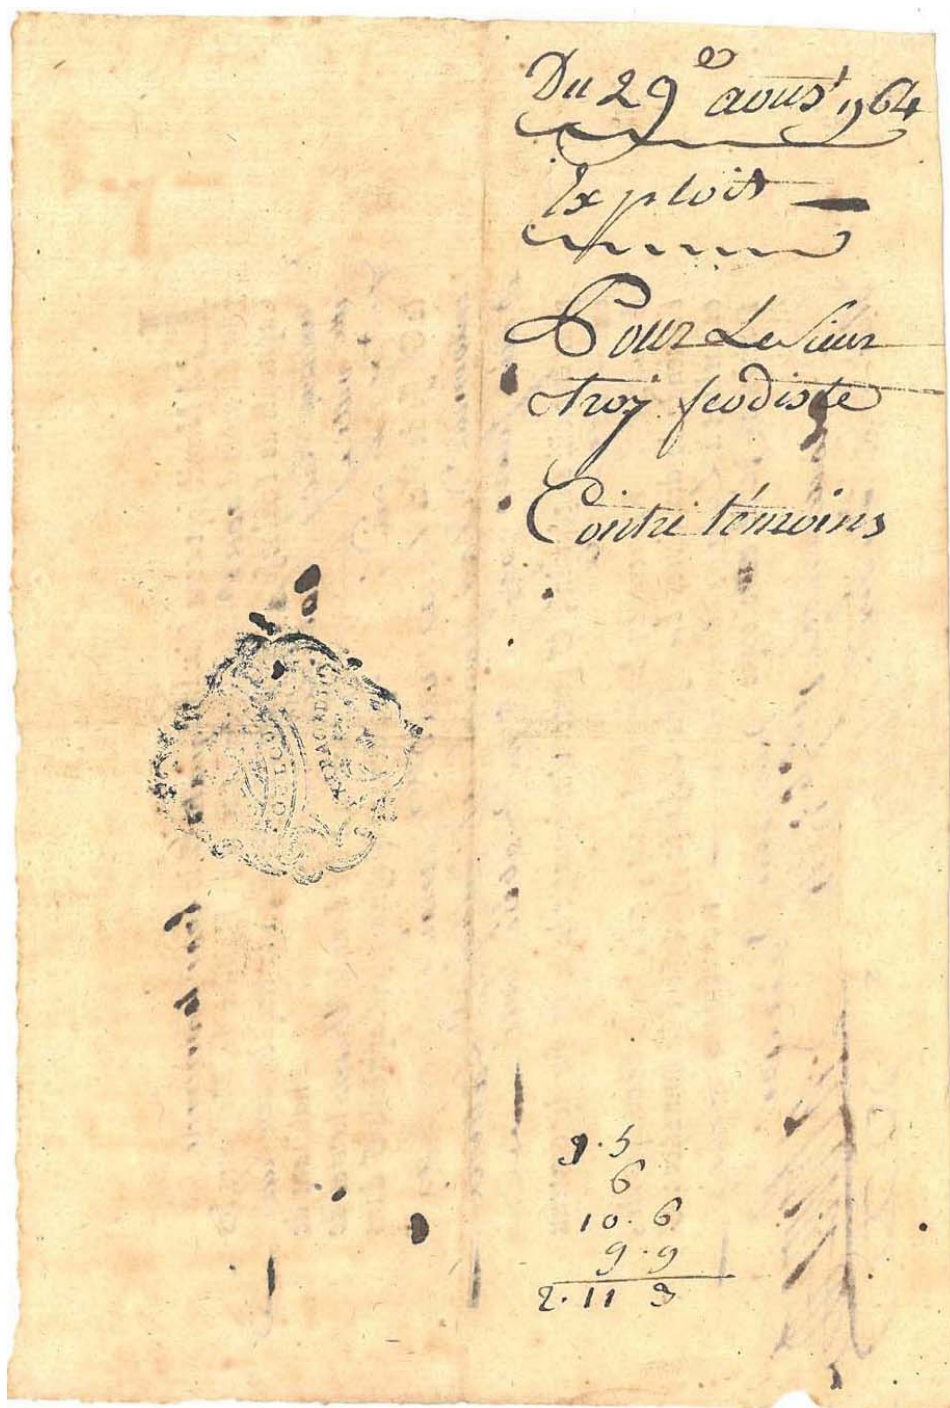 Du 29e aoust 1764
Exploit
Pour Le Sieur
troy feodiste
Contre témoins
1. 5
6
10. 6
9. 9
2. 11 3